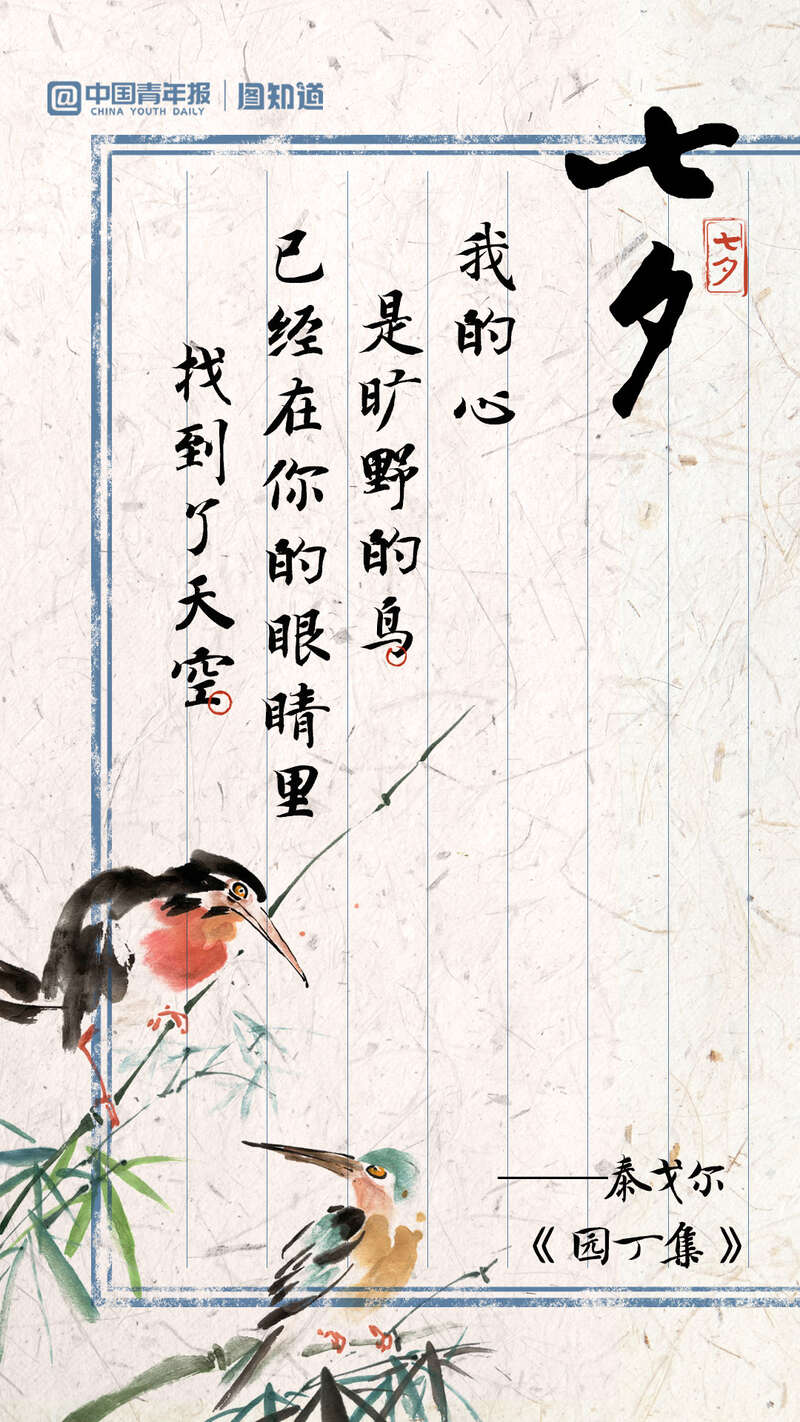 @中国青年报 图知道
CHINA YOUTH DAILY
七夕
七夕
我的心
是旷野的鸟。
已经在你的眼睛里
找到了天空。
——泰戈尔
《园丁集》